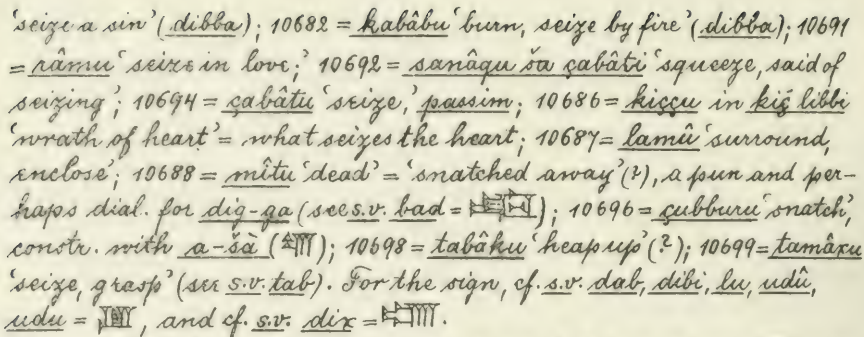 'seize a sin' (dibba); 10682 = kabâbu 'burn, seize by fire' (dibba); 10691
= râmu 'seize in love;' 10692 = sanâqu ša çabâti 'squeeze, said of
seizing'; 10694 = çabâtu 'seize,' passim; 10686 = kiççu in kiç libbi
'wrath of heart' = what seizes the heart; 10687 = lamû 'surround,
enclose'; 10688 = mîtu 'dead' = 'snatched away' (?), a pun and per-
haps dial. for dig-ga (see s.v. bad = ); 10696 = çubburu 'snatch',
constr. with a-šà ( ); 10698 = tabâku 'heap up' (?); 10699 = tamâxu
'seize, grasp' (see s.v. tab). For the sign, cf. s.v. dab, dibi, lu, udû,
udu = , and cf. s.v. dix = .